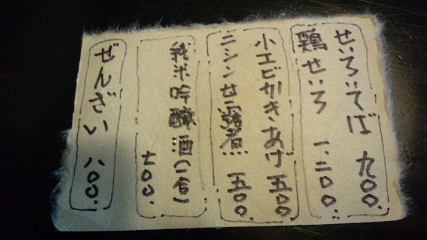 せいろそば 九〇〇.
鶏せいろ 一、二〇〇.
小エビかきあげ 五〇〇
ニシン甘露煮 五〇〇.
純米吟醸酒(一合)
七〇〇.
ぜんざい 八〇〇.